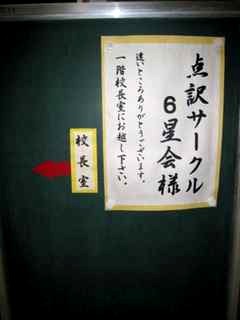 点訳サークル
6星会様
遠いところありがとうございます。
一階校長室にお越し下さい。
校長室